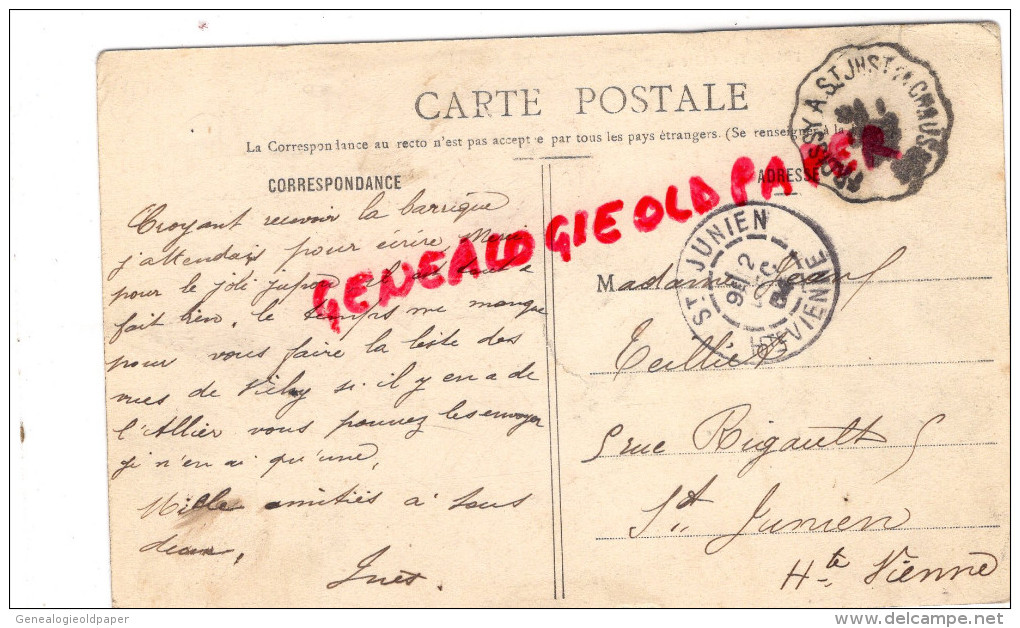 CARTE POSTALE
La Correspondance au recto n'est pas acceptée par tous les pays étrangers. (Se renseigner à la
CORRESPONDANCE
ADRESSE
Croyant recevoir la barrique
j'attendais pour écrire Merci
pour le joli jupon il est tout a
fait bien, le temps me manque
pour vous faire la liste des
vues de Vichy si il y en a de
l'Allier vous pouvez les envoyer
je n'en ai qu'une,
Mille amitiés à tous
deux,
Inès.
Madame
rue Rigault 5
St Junien
Hte Vienne
ST JUNIEN
HTE VIENNE
GENEALOGIE OLD PAPER
Genealogieoldpaper
www.delcampe.net